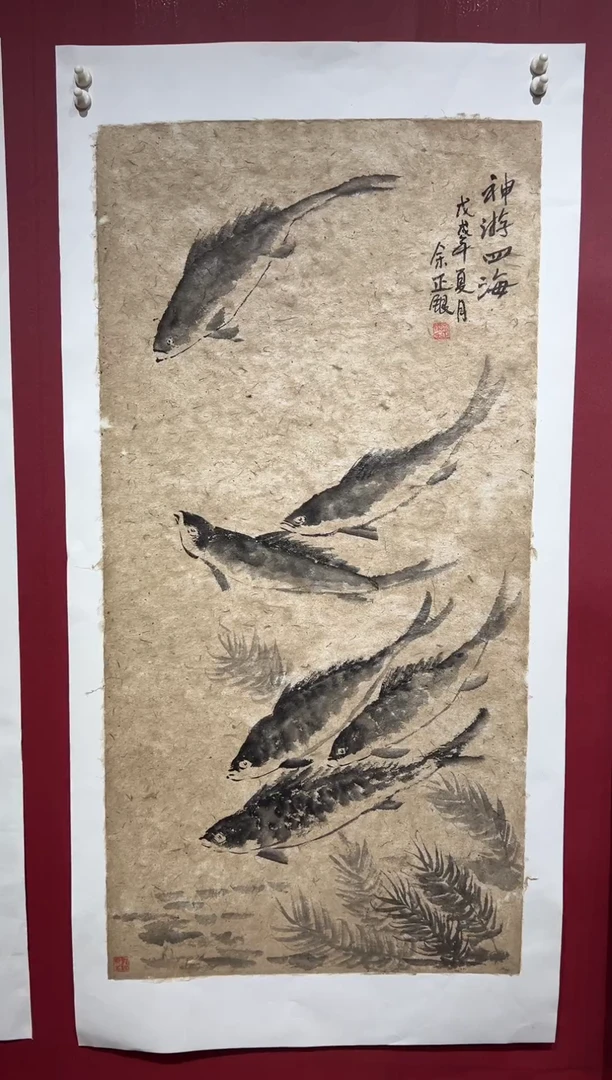 神游四海
戊戌年夏月
余正银